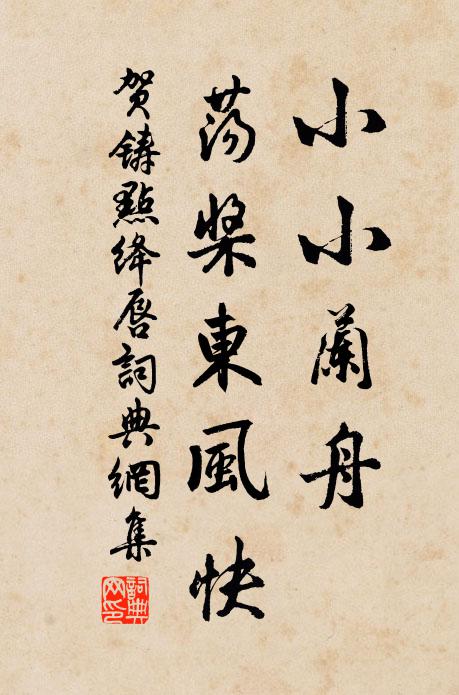 小小蘭舟
荡槳東風快
贺鑄點绛唇詞典網集
詞典
网印